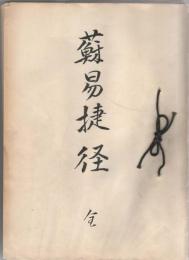 蘇易捷径 全